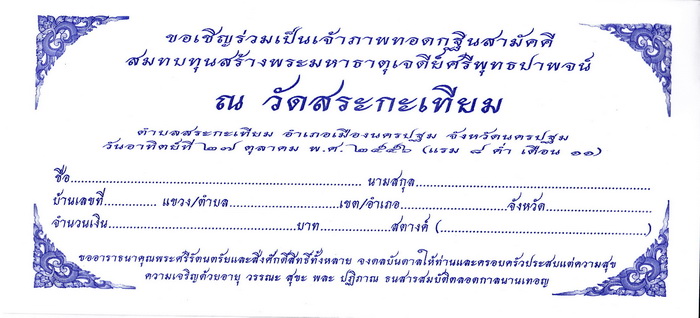 ขอเชิญร่วมเป็นเจ้าภาพทอดกฐินสามัคคี
สมทบทุนสร้างพระมหาธาตุเจดีย์ศรีพุทธปาพจน์
ณ วัดสระกะเทียม
ตำบลสระกะเทียม อำเภอเมืองนครปฐม จังหวัดนครปฐม
วันอาทิตย์ที่ ๒๗ ตุลาคม พ.ศ. ๒๕๕๖ (แรม ๘ ค่ำ เดือน ๑๑)
ชื่อ.................................................................. นามสกุล..................................................................
บ้านเลขที่............... แขวง/ตำบล..............................เขต/อำเภอ..............................จังหวัด..............................
จำนวนเงิน..................................................บาท....................สตางค์ (..................................................)
ขออาราธนาคุณพระศรีรัตนตรัยและสิ่งศักดิ์สิทธิ์ทั้งหลาย จงดลบันดาลให้ท่านและครอบครัวประสบแต่ความสุข
ความเจริญด้วยอายุ วรรณะ สุขะ พละ ปฏิภาณ ธนสารสมบัติตลอดกาลนานเทอญ